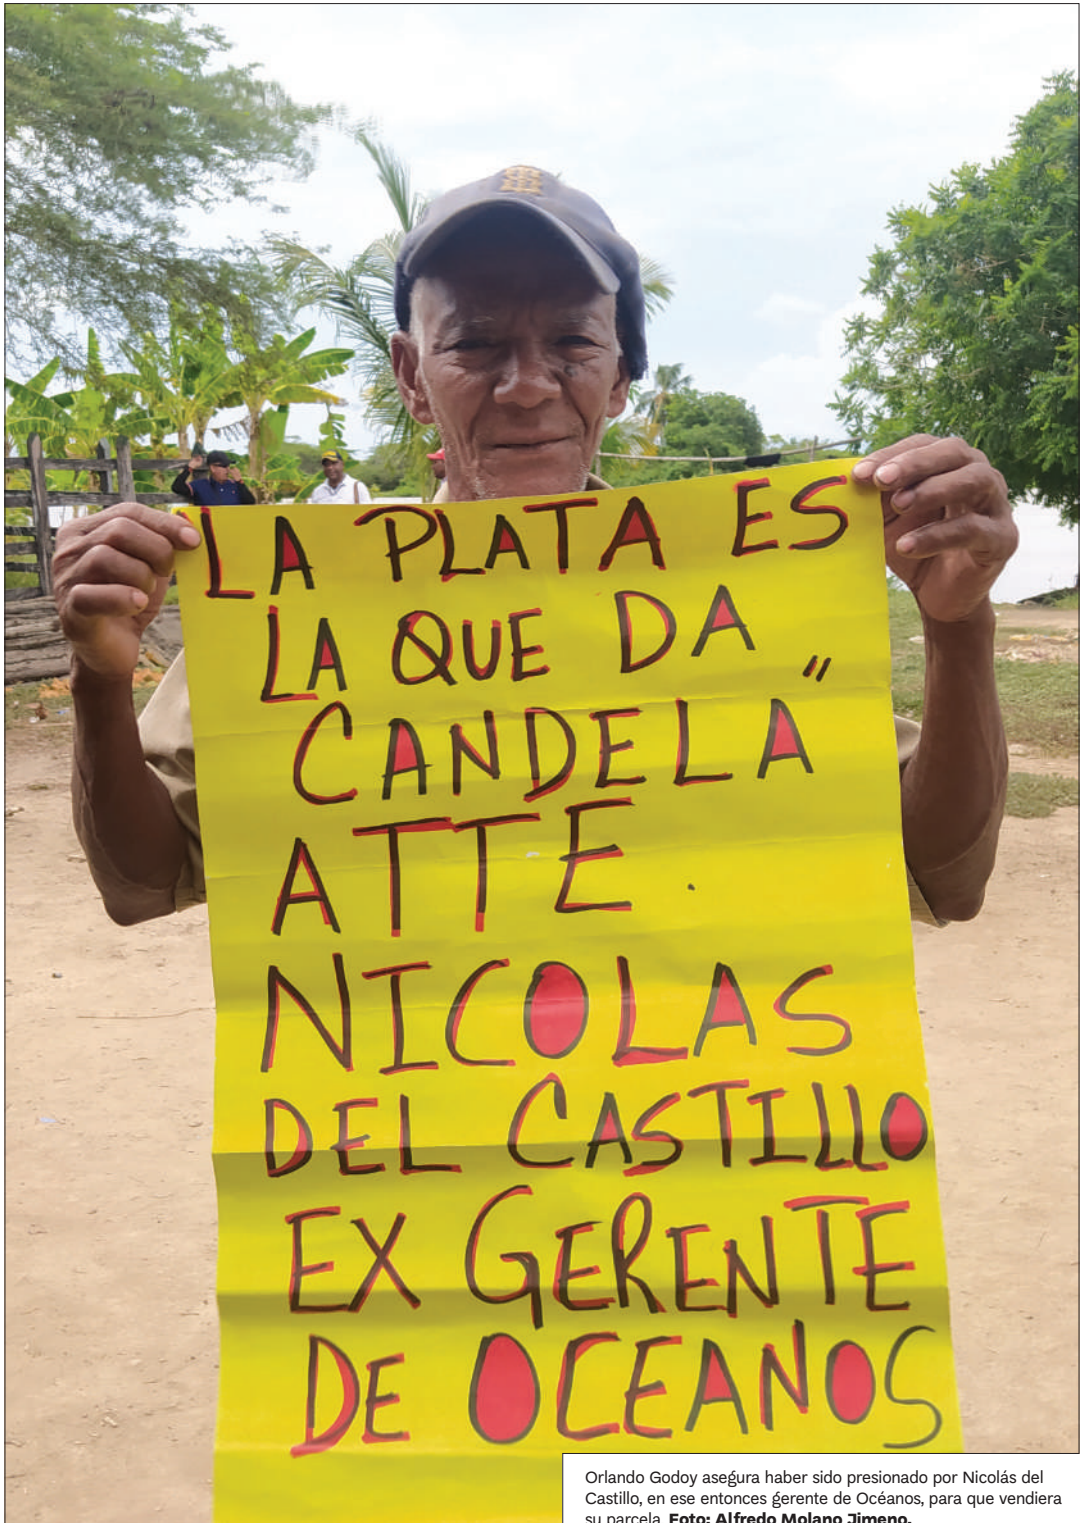 LA PLATA ES
LA QUE DA
CANDELA"
ATTE.
NICOLAS
DEL CASTILLO
EX GERENTE
DE OCEANOS
Orlando Godoy asegura haber sido presionado por Nicolás del
Castillo, en ese entonces gerente de Océanos, para que vendiera
su parcela. Foto: Alfredo Molano Jimeno.